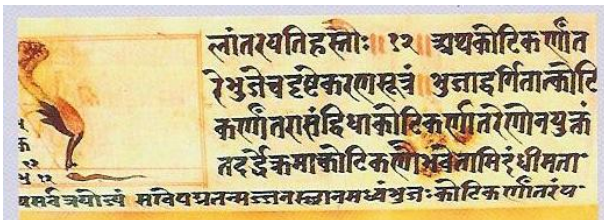 लांतरयतिहस्तौः॥१२॥ अथकोटिकर्णांत
रेभुजेचदृष्टेकरणसूत्रं॥भुजाद्वर्गितात्कोटि
कर्णांतराप्तंद्विधाकोटिकर्णांतरेणोनयुक्तं
तदर्द्धेक्रमात्कोटिकर्णौभवेतामिदंधीमता
यसर्वत्रयोज्यं सखेपद्मतन्मज्जनस्थानमध्यंभुजःकोटिकर्णांतरंप